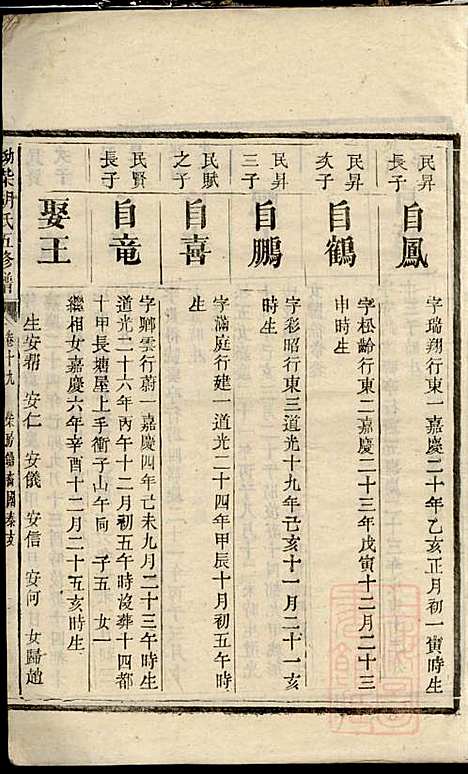 民昇
長子
自鳳
字瑞翔行東一嘉慶二十年乙亥正月初一寅時生
民昇
次子
自鶴
字松齡行東二嘉慶二十三年戊寅十二月二十三
申時生
民昇
三子
自鵬
字彩昭行東三道光十九年己亥十一月二十一亥
時生
民賦
之子
自喜
字滿庭行建一道光二十四年甲辰十月初五午時
生
民賢
長子
自竜
字鄉雲行蔚一嘉慶四年己未九月二十三午時生
道光二十六年丙午十二月初五午時沒葬十四都
十甲長塘屋上手衝子山午向 子五 女一
娶王
繼相女嘉慶六年辛酉十二月二十五亥時生
生安邦 安仁 安儀 安信 安何 女歸趙
胡氏五修譜 卷十九